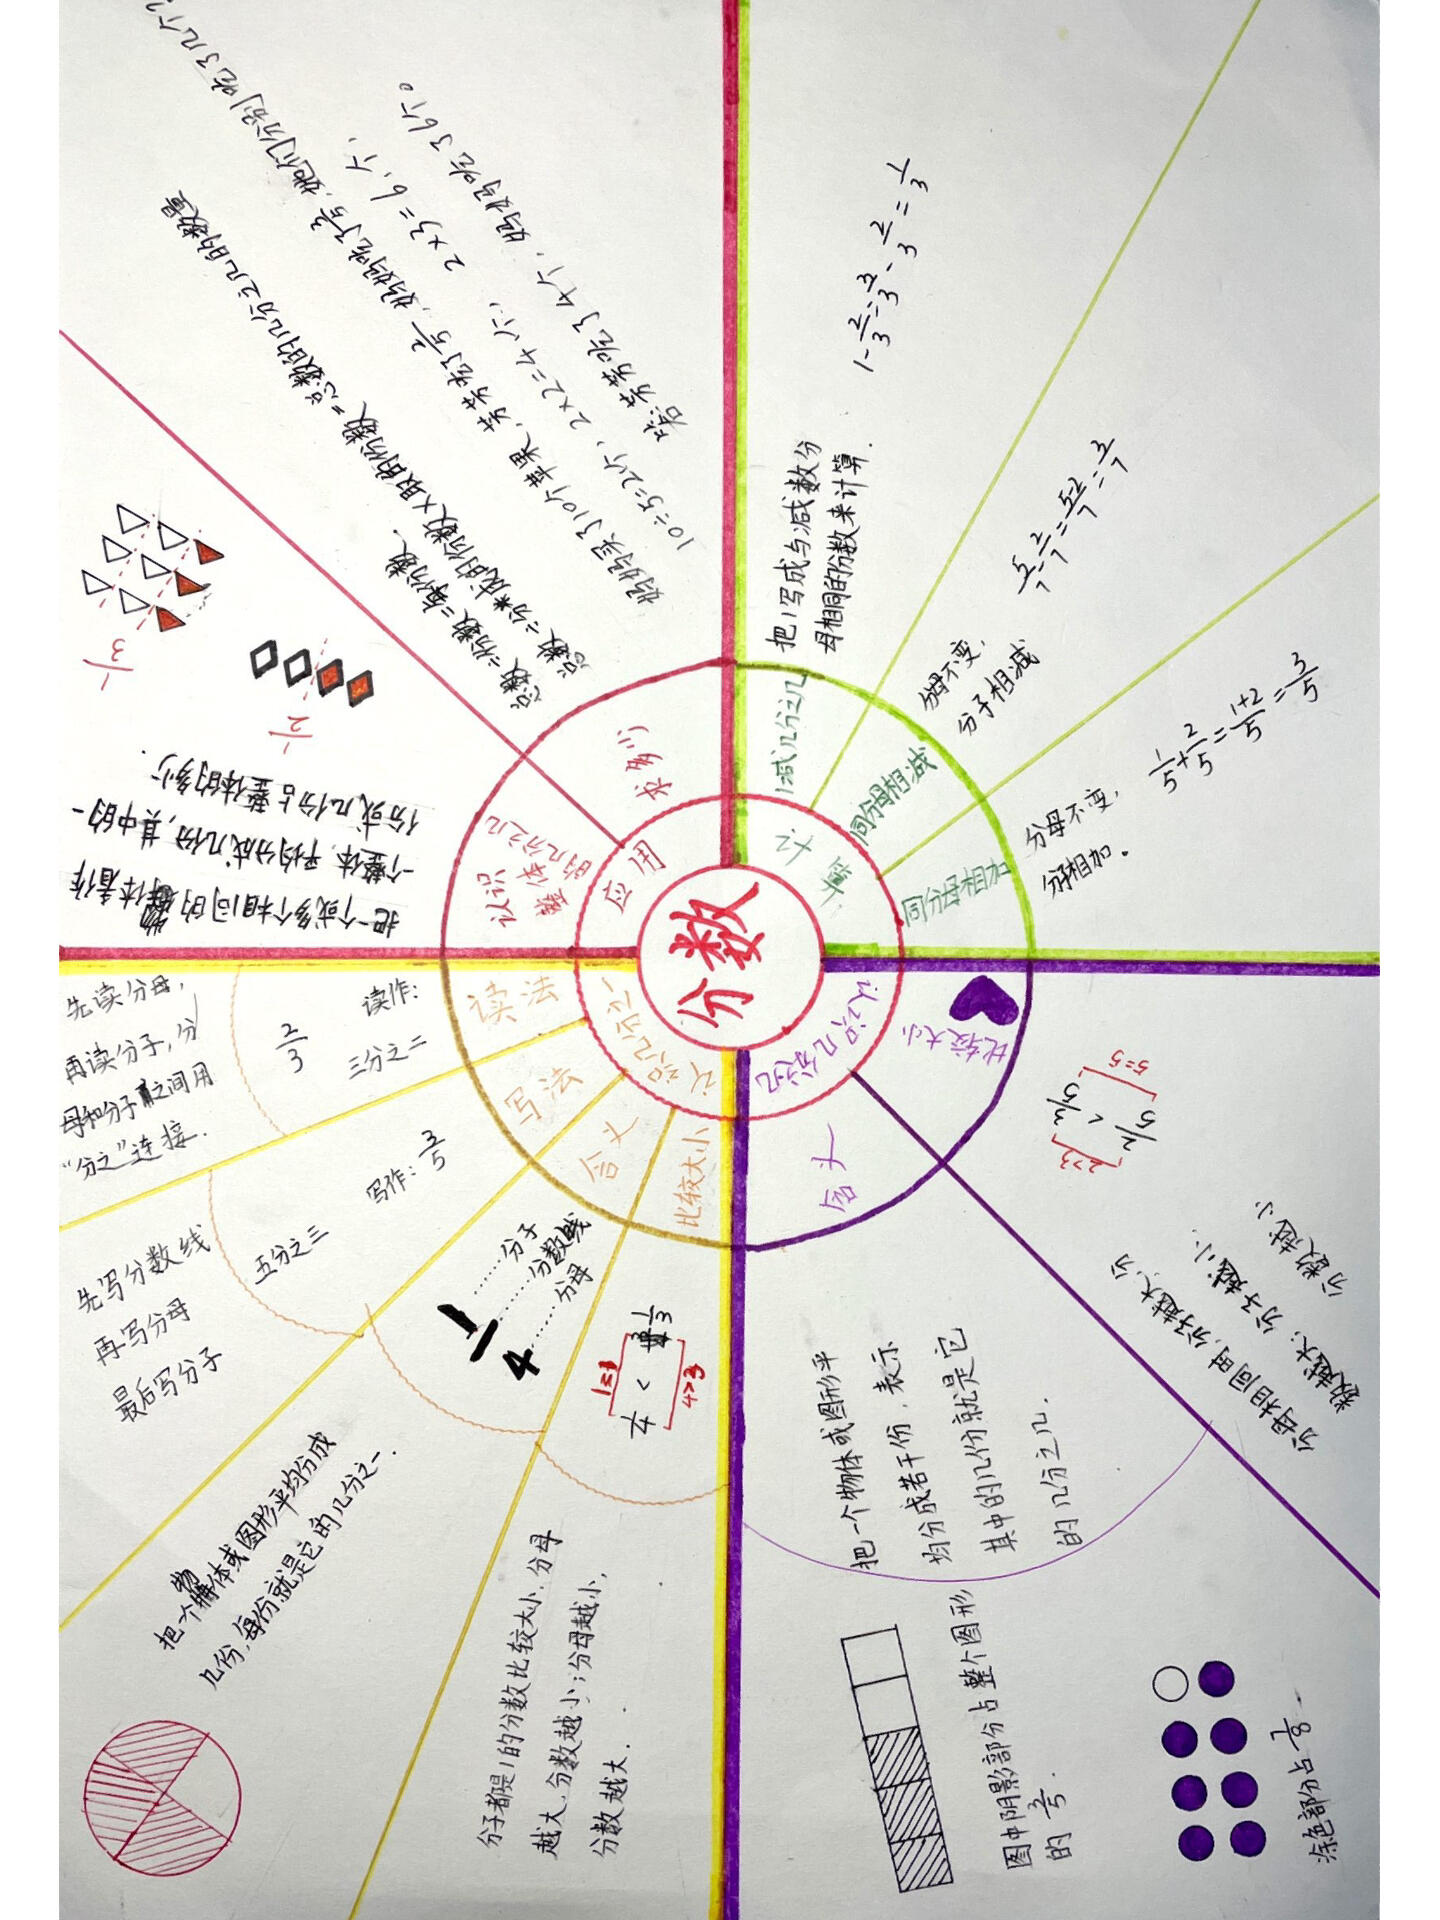 分数
应用
求多少
认识整体的几分之几
总数÷份数=每份数.
总数÷分成的份数×取的份数=总数的几分之几的数量
妈妈买了10个苹果,芳芳吃了2/5,妈妈吃了3/5,她们分别吃了几个?
10÷5=2个, 2×2=4个, 2×3=6个,
答:芳芳吃了4个,妈妈吃了6个。
把一个或多个相同的物体看作
一个整体,平均分成几份,其中的一
份或几份占整体的多少.
1/3
1/2
计算
1减几分之几
把1写成与减数分
母相同的分数来计算.
1-2/3=3/3-2/3=1/3
同分母相减
分母不变,
分子相减
5/7-2/7=5-2/7=3/7
同分母相加
分母不变,
分子相加.
1/5+2/5=1+2/5=3/5
认识几分之几
比较大小
2/5<3/5
5=5
2>3
分母相同时,分子越大,分
数越大;分子越小,
分数越小
含义
把一个物体或图形平
均分成若干份,表示
其中的几份就是它
的几分之几.
图中阴影部分占整个图形
的3/5.
涂色部分占7/8
认识几分之一
读法
先读分母,
再读分子,分
母和分子之间用
“分之”连接.
2/3
读作:
三分之二
写法
写作:3/5
五分之三
先写分数线
再写分母
最后写分子
含义
1/4
分子
分数线
分母
把一个物体或图形平均分成
几份,每份就是它的几分之一.
比较大小
1=1
1/4<1/3
4>3
分子都是1的分数比较大小,分母
越大,分数越小;分母越小,
分数越大.